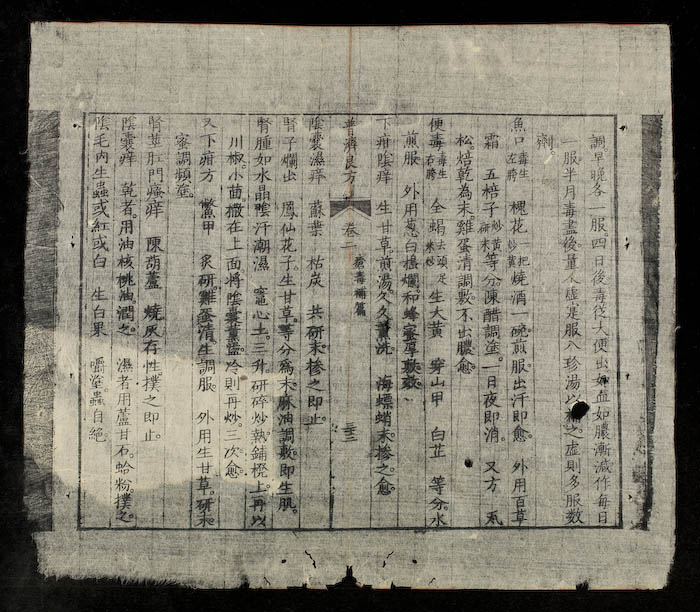 調早晚各一服四日後毒從大便出如血如膿漸減作每日
一服半月毒盡後量人虛實服八珍湯以補之虛則多服數
劑
魚口毒生左胯 槐花一把炒黃燒酒一碗煎服出汗即愈 外用百草
霜 五棓子炒黃研末等分陳醋調塗。一日夜即消。 又方 炙
松焙乾為末雞蛋清調敷不出膿愈
便毒毒生右胯 全蝎去頭足米炒 生大黃 穿山甲 白芷 等分水
煎服 外用葱白搗爛和蜂蜜厚敷
下疳陰痒 生甘草煎湯久久洗 海螵蛸末摻之愈
普濟良方 卷二 瘡毒補篇 三三
陰囊濕痒 蘇葉 枯炭 共研末摻之即止。
腎子爛出 鳳仙花子生甘草等分為末麻油調敷即生肌。
腎腫如水晶陰汗潮濕 竈心土三升研碎炒熱鋪櫈上再以
川椒小茴撒在上面將陰囊冷則再炒三次愈
又下疳方 鱉甲 炙研雞蛋清生調服 外用生甘草研末
蜜調頻塗
腎莖肛門瘙痒 陳葫蘆 燒灰存性撲之即止。
陰囊痒 乾者用油核桃油潤之。 濕者用蘆甘石蛤粉撲之。
陰毛內生蟲或紅或白 生白果 嚼塗蟲自絕